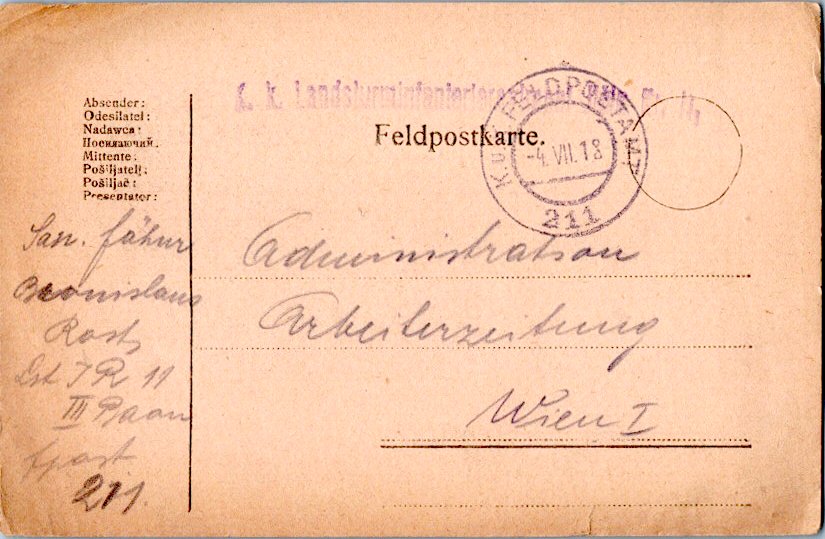 k. k. Landsturminfanterieregiment Nr. 11,
K.u.K. FELDPOSTAMT
-4.VII.18
211
Feldpostkarte.
Absender:
Odesílatel:
Nadawca:
Посилаючий.
Mittente:
Pošiljatelj:
Pošiljač:
Presentator:
San. fähnr
Bronislaus
Rost
Lst I R 11
III Baon
fpost
211.
Administration
Arbeiterzeitung
Wien I